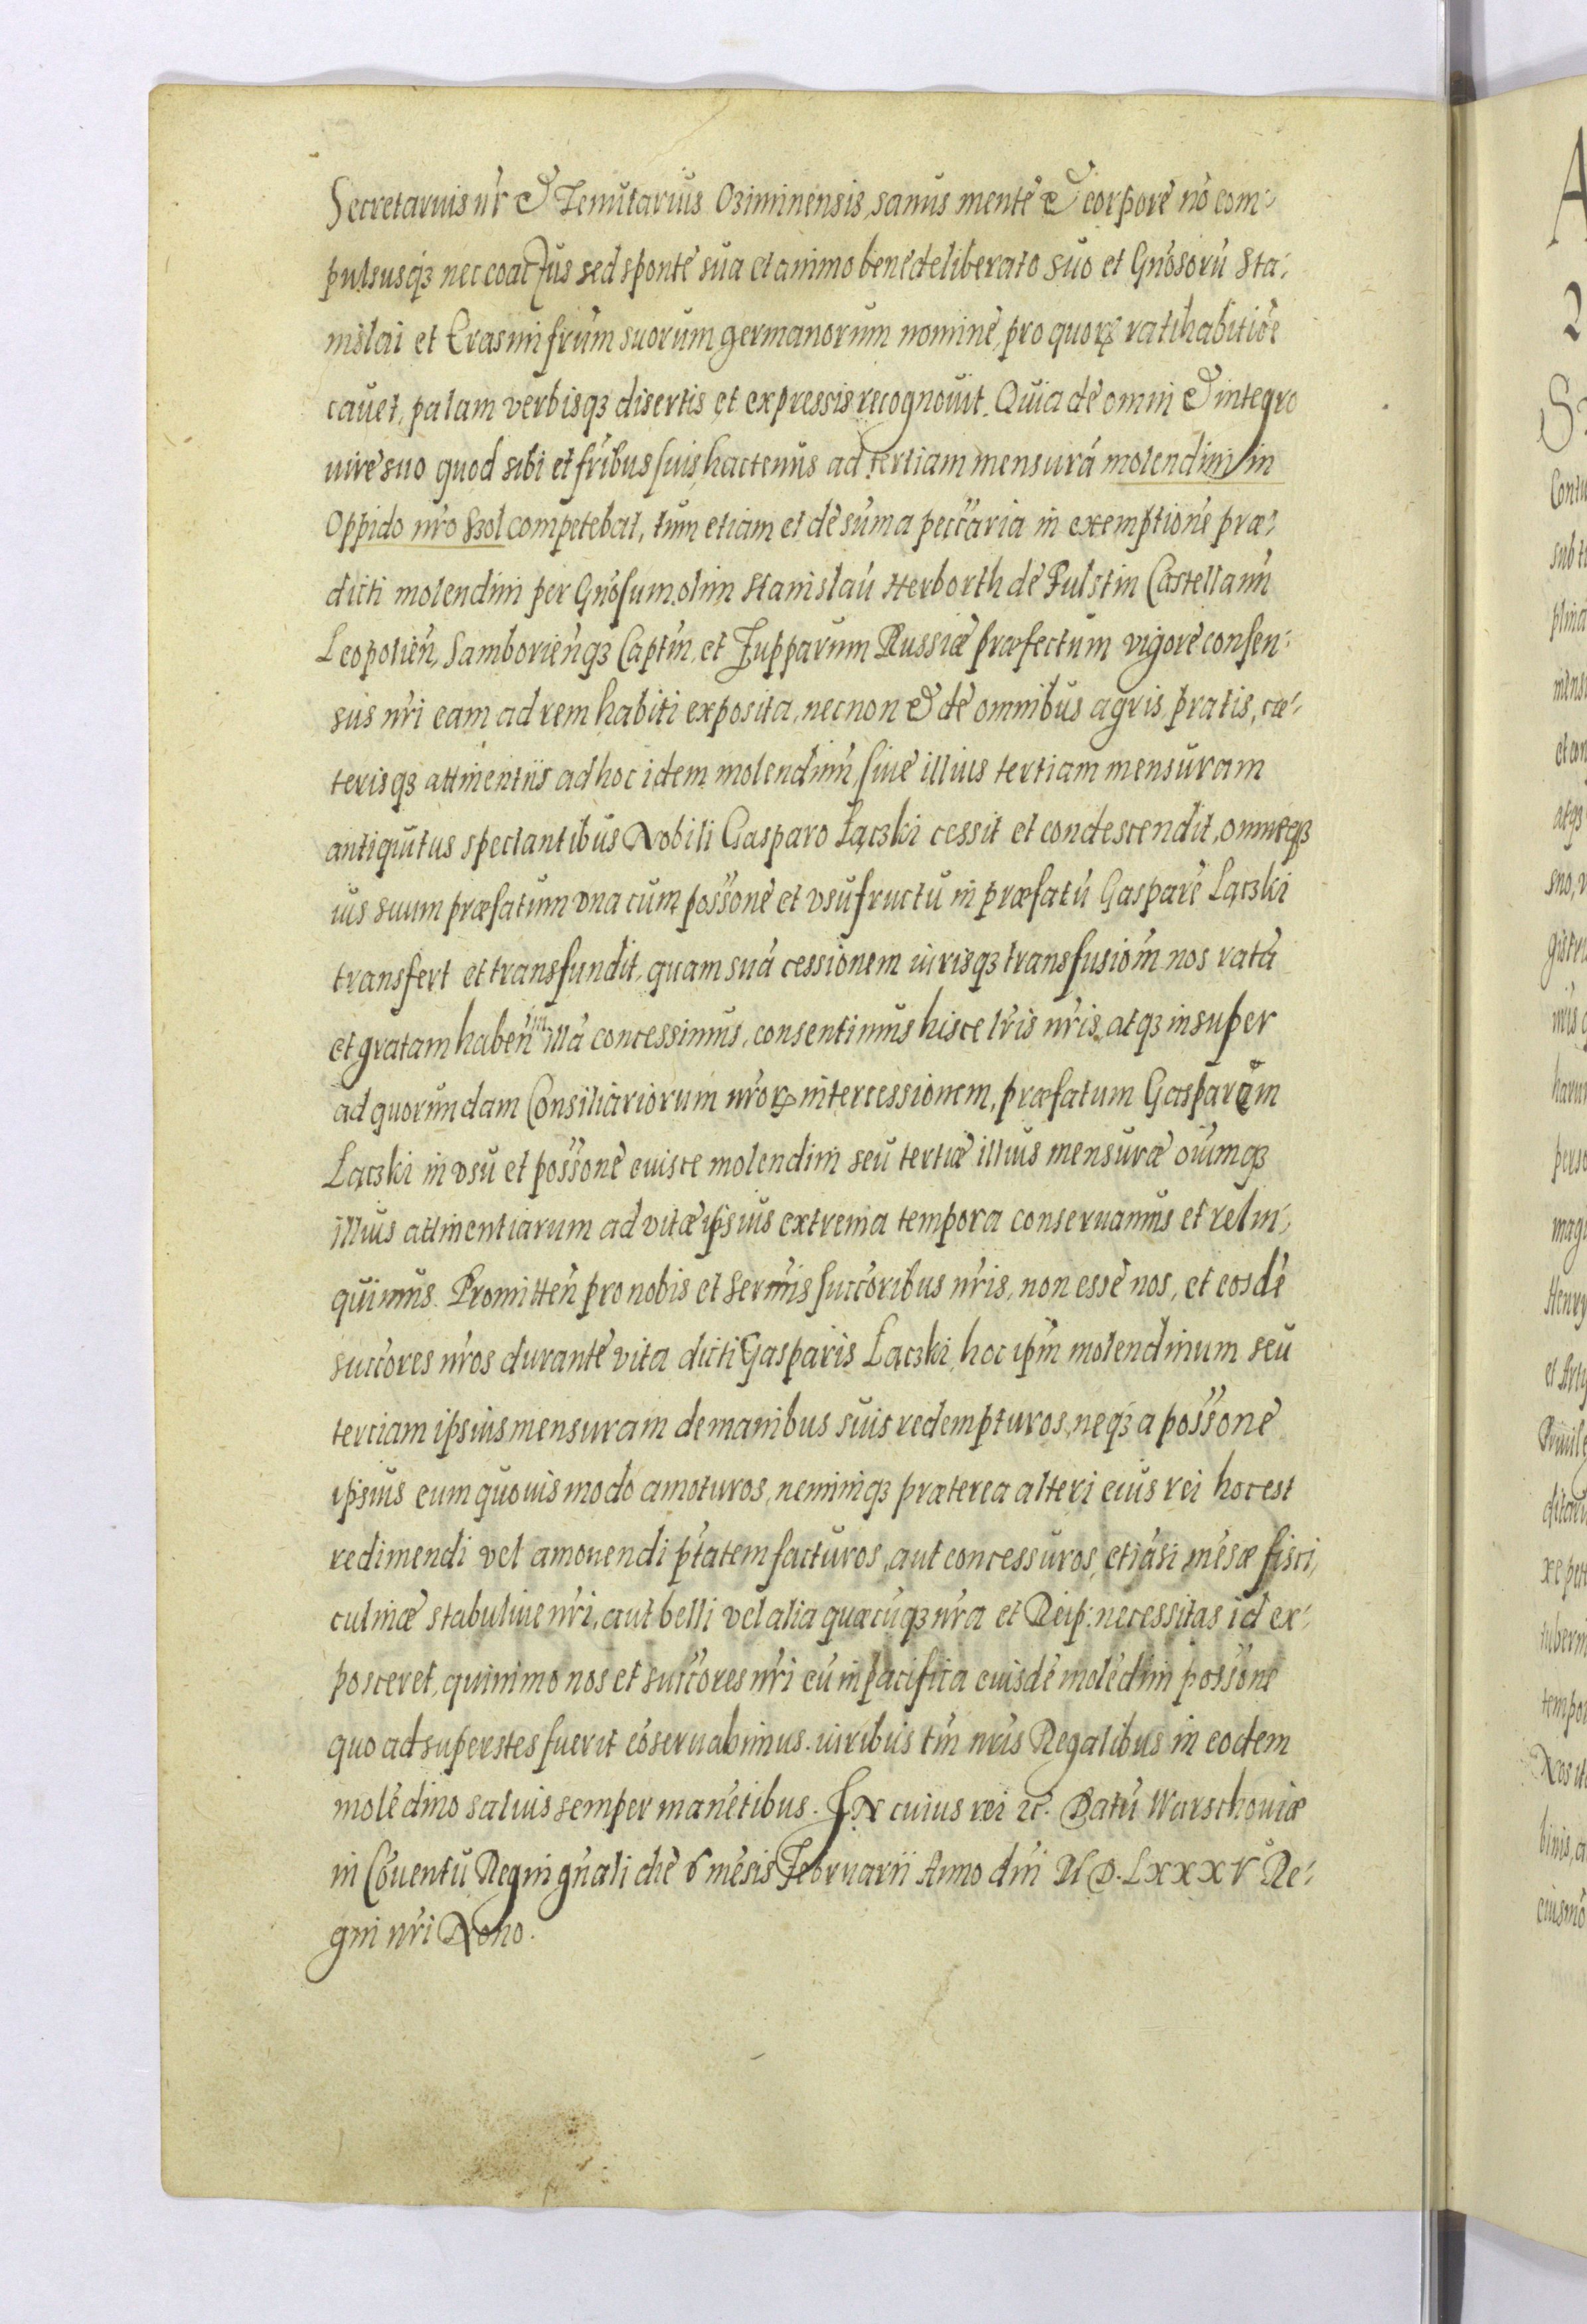 Secretarius nr̃ et Tenutarius Oziminensis, sanus mente et corpore nõ com-
pulsusqȝ nec coactus sed sponte sua et animo bene deliberato suo et Gnõsorũ Sta-
nislai et Erasmi frũm suorum germanorum nomine, pro quorꝝ ratihabitiõe
cavet, palam verbisqȝ disertis et expressis recognovit. Quia de omni et integro
iure suo quod sibi et frĩbus suis hactenus ad tertiam mensurã molendini in
Oppido nrõ Szol competebat, tum etiam et de sũma peccãria in exemptione præ-
dicti molendini per Gnõsum olim Stanislaũ Herborth de Fulstin Castellanũ
Leopolieñ, Samborieñqȝ Captm̃, et Zupparum Russiæ præfectum vigore consen-
sus nrĩ eam ad rem habiti exposita, nec non et de omnibus agris pratis, cæ-
terisqȝ attinentiis ad hoc idem molendinũ, sive illius tertiam mensuram
antiquitus spectantibus Nobili Gasparo Łączki cessit et condescendit, omneqȝ
ius suum præfatum vna cum possõne et vsufructu in præfatũ Gaspare Łączki
transfert et transfundit, quam suã cessionem iurisqȝ transfusiom̃ nos ratã
et gratam habeñ in illã concessimus, consentimus hisce lrĩs nrĩs, atqȝ insuper
ad quorundam Consiliariorum nrõrꝝ intercessionem, præfatum Gasparem
Łączki in vsu et possõne eiusce molendini seu tertiæ illius mensuræ oĩumqȝ
illius attinentiarum ad vitæ ipsius extrema tempora conservamus et relin-
quimus. Promitteñ pro nobis et Serm̃is succõribus nrĩs, non esse nos, et eosdẽ
succõres nrõs durante vita dicti Gasparis Łączki, hoc ipm̃ molendinum seu
terciam ipsius mensuram de manibus suis redempturos, neqȝ a possõne
ipsius eum quovis modo amoturos, neminiqȝ præterea alteri eius rei hoc est
redimendi vel amovendi ptãtem facturos, aut concessuros, etiãsi mẽsæ fisci,
culinæ stabulive nrĩ, aut belli vel alia quæcũqȝ nrã et Reip: necessitas id ex-
posceret, quinimo nos et succõres nrĩ eũ in pacifica eiusdẽ molẽdini possõne
quo ad superstes fuerit cõservabimus. iuribus tm̃ nrĩs Regalibus in eodem
molẽdino salvis semper manẽtibus. In cuius rei ꝛc. Datũ Warschoviæ
in Cõventu Regni gnãli die V mẽsis Februarii Anno dnĩ M.D.LXXXV Re-
gni nrĩ Nono.